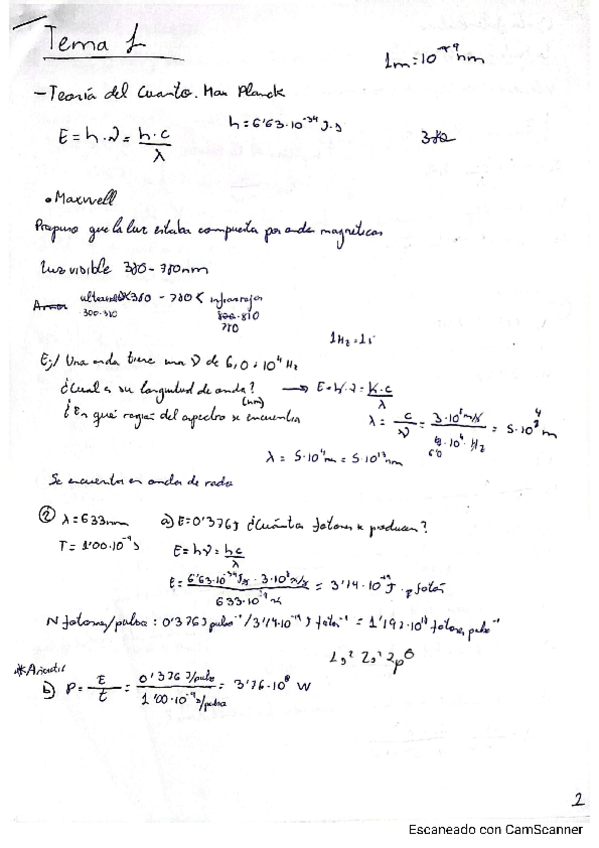 Tema 1
1m = 10⁺⁹ nm
- Teoría del Cuanto. Max Planck
E = h·ν = h·c/λ
h = 6'63·10⁻³⁴ J·s
380
• Maxwell
Propuso que la luz estaba compuesta por ondas magnéticas
Luz visible 380 - 780nm
ultraviol < 380 - 780 < infrarrojos
300-380
810
780
1Hz = 1s
Ej/ Una onda tiene una ν de 6,0·10⁴ Hz
¿Cual es su longitud de onda? (nm) → E = h·ν = h·c/λ
¿En qué región del espectro se encuentra
λ = c/ν = 3·10⁸ m/s / 6'0·10⁴ Hz = 5·10³ m
λ = 5·10⁴ m = 5·10¹³ nm
Se encuentra en ondas de radio
② λ = 633nm a) E = 0'376J ¿Cuántos fotones se producen?
T = 1'00·10⁻⁹ s E = h·ν = hc/λ
E = 6'63·10⁻³⁴ Js · 3·10⁸ m/s / 633·10⁻⁹ m = 3'14·10⁻¹⁹ J · fotón
N fotones/pulso: 0'376J pulso⁻¹ / 3'14·10⁻¹⁹ J fotón⁻¹ = 1'197·10¹⁸ fotones pulso⁻¹
1s² 2s² 2p⁶
*Añadir
b) P = E/t = 0'376 J/pulso / 1'00·10⁻⁹ s/pulso = 3'76·10⁸ W
2
Escaneado con CamScanner